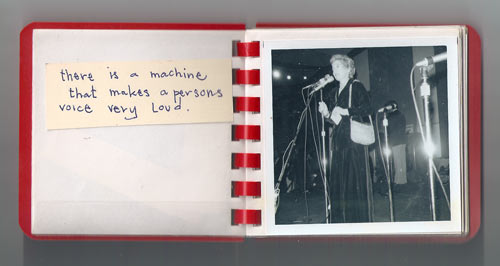 there is a machine
that makes a persons
voice very Loud.